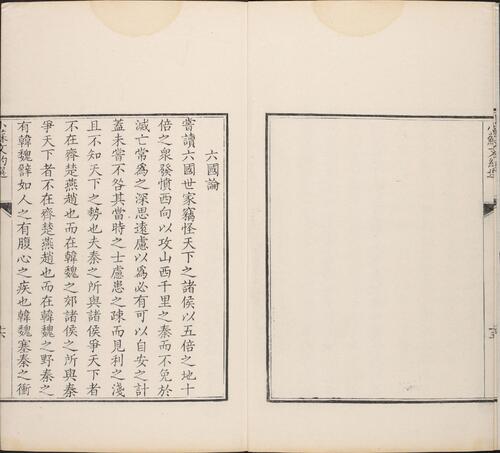 六國論
嘗讀六國世家竊怪天下之諸侯以五倍之地十
倍之衆發憤西向以攻山西千里之秦而不免於
滅亡常爲之深思遠慮以爲必有可以自安之計
蓋未嘗不咎其當時之士慮患之疎而見利之淺
且不知天下之勢也夫秦之所與諸侯爭天下者
不在齊楚燕趙也而在韓魏之郊諸侯之所與秦
爭天下者不在齊楚燕趙也而在韓魏之野秦之
有韓魏譬如人之有腹心之疾也韓魏塞秦之衝